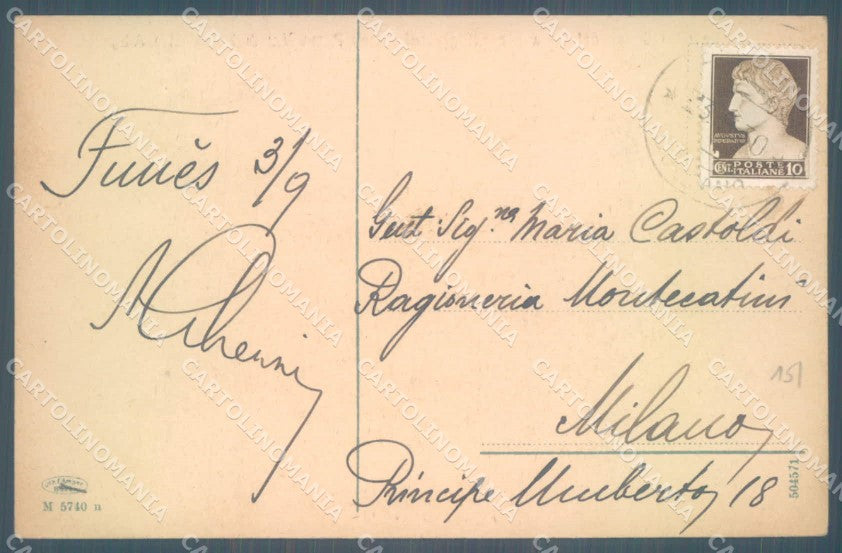 Funès 3/9
Gent Sig.na Maria Castoldi
Ragioneria Montecatini
Milano
Principe Umberto, 18
15/
504571
M 5740 n
AVGVSTVS
CENT. POSTE ITALIANE 10
CARTOLINOMANIA